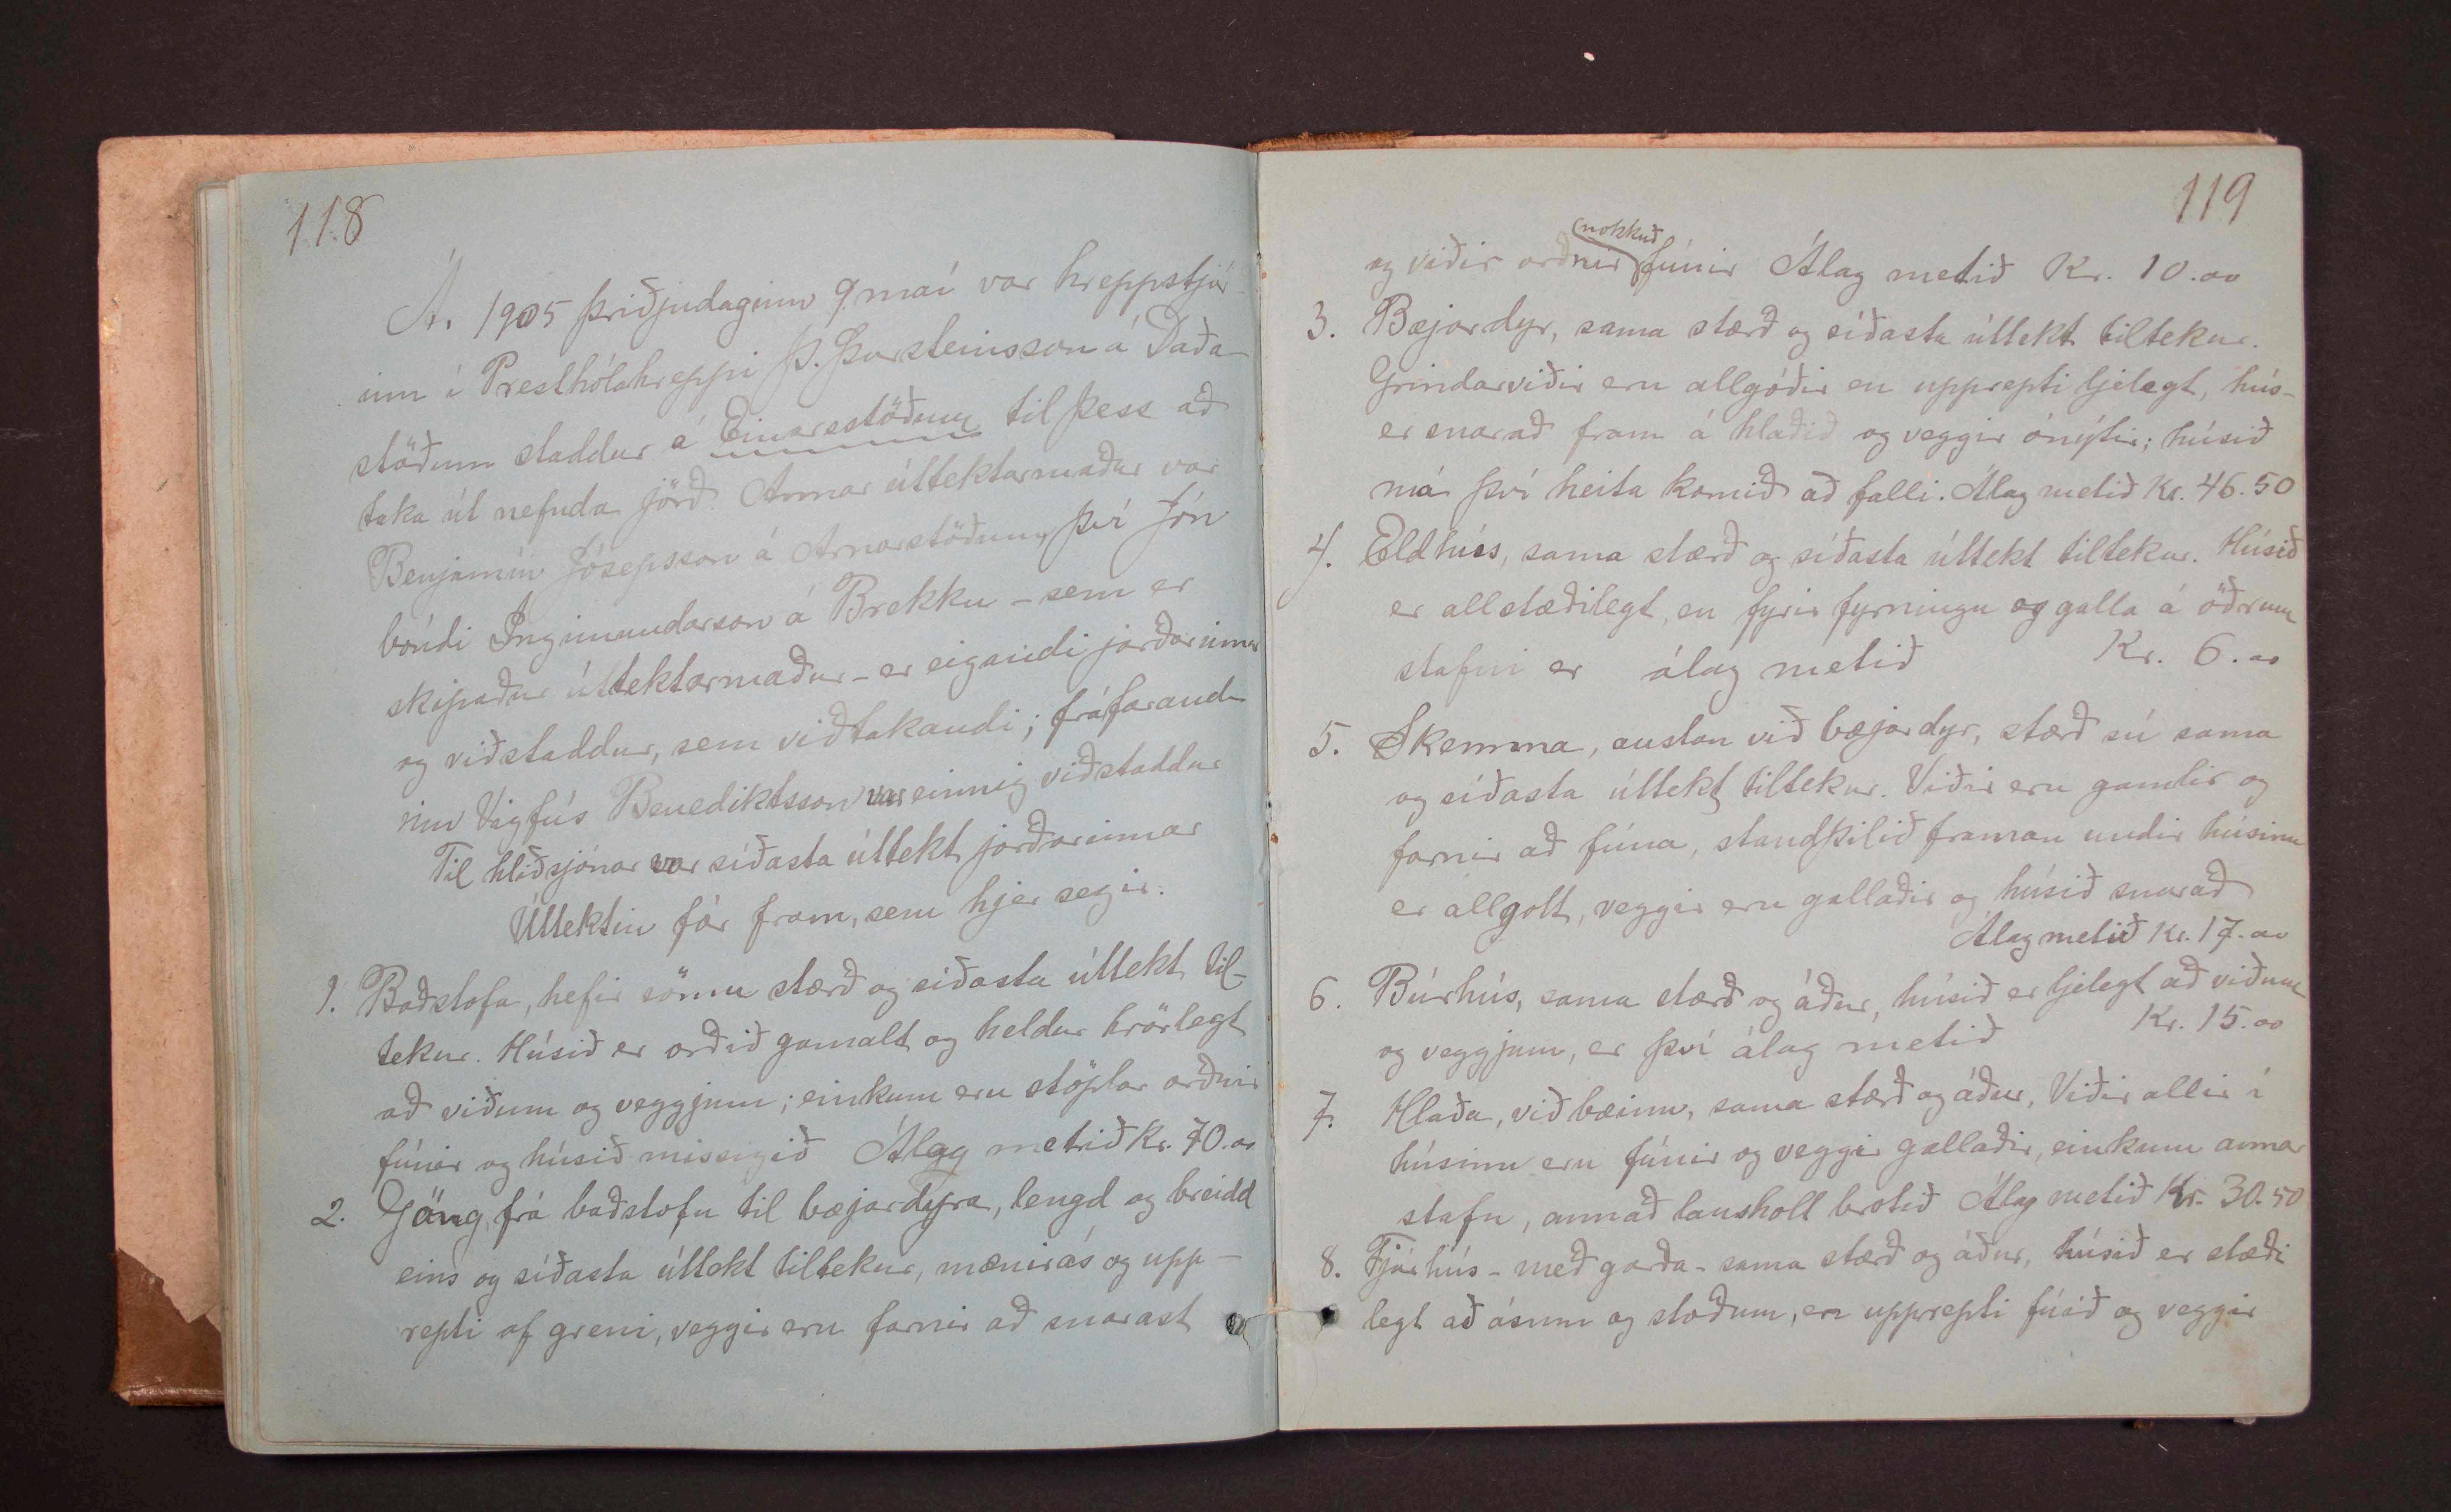 118
Ár 1905 þriðjudaginn 9. maí var hreppstjór-
inn í Presthólahreppi Þ. Þorsteinsson á Daða-
stöðum staddur á Einarsstöðum til þess að
taka út nefnda jörð. Annar úttektarmaður var
Benjamín Jósepsson á Arnarstöðum, því Jón
bóndi Ingimundarson á Brekku - sem er
skipaður úttektarmaður - er eigandi jarðarinnar
og viðstaddur, sem viðtakandi; fráfarand-
inn Vigfús Benediktsson var einnig viðstaddur
Til hliðsjónar var síðasta úttekt jarðarinnar
Úttektin fór fram, sem hjer segir.
1. Baðstofa, hefir sömu stærð og síðasta úttekt til-
tekur. Húsið er orðið gamalt og heldur hrörlegt
að viðum og veggjum; einkum eru stöplar orðnir
fúnir og húsið missigið Álag metið Kr. 70.00
2. Göng, frá baðstofu til bæjardyra, lengd og breidd
eins og síðasta úttekt tiltekur, mænirás og upp-
repti af greni, veggir eru farnir að snarast
119
nokkuð
og viðir orðnir fúnir Álag metið Kr. 10.00
3. Bæjardyr, sama stærð og síðasta úttekt tiltekur.
Grindarviðir eru allgóðir en upprepti ljelegt, hús-
er snarað fram á hlaðið og veggir ónýtir; húsið
má því heita komið að falli. Álag metið Kr. 46.50
4. Eldhús, sama stærð og síðasta úttekt tiltekur. Húsið
er allstæðilegt, en fyrir fyrningu og galla á öðrum
stafni er álag metið Kr. 6.00
5. Skemma, austan við bæjardyr, stærð sú sama
og síðasta úttekt tiltekur. Viðir eru gamlir og
farnir að fúna, standþilið framan undir húsinu
er allgott, veggir eru gallaðir og húsið snarað
Álag metið Kr. 17.00
6. Búrhús, sama stærð og áður, húsið er ljelegt að viðum
og veggjum, er því álag metið Kr. 15.00
7. Hlaða, við bæinn, sama stærð og áður, Viðir allir í
húsinu eru fúnir og veggir gallaðir, einkum annar
stafn, annað lausholt brotið Álag metið Kr. 30.50
8. Fjárhús - með garða - sama stærð og áður, húsið er stæði
legt að ásum og stoðum, en upprepti fúið og veggir